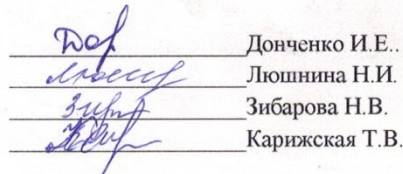 Донченко И.Е..
Люшнина Н.И.
Зибарова Н.В.
Карижская Т.В.